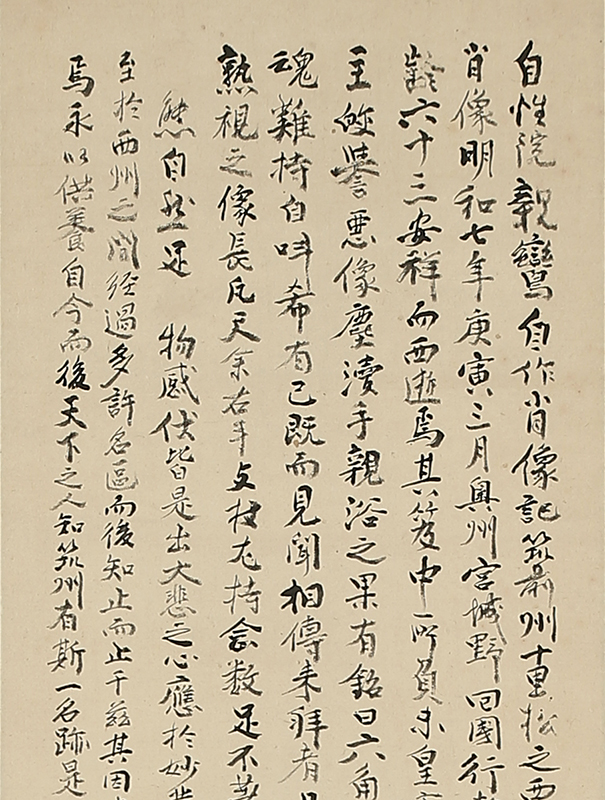 自性院親鸞自作肖像記筑前州十里松之西
肖像明和七年庚寅三月奥州宮城野回國行
齡六十三安祥而西逝焉其笈中所負未皇
主故誉悪像塵瀆手親浴之果有銘曰六角
魂難持自呌希有已既而見聞相傳来拜者
熟視之像長尺天余右手支杖左持念数足不
然自然足 物感伏皆是出大悲之心應於妙
至於西州之間經過多許名區而後知止而止于茲其因
焉永以供養自今而後天下之人知筑州有斯一名跡是